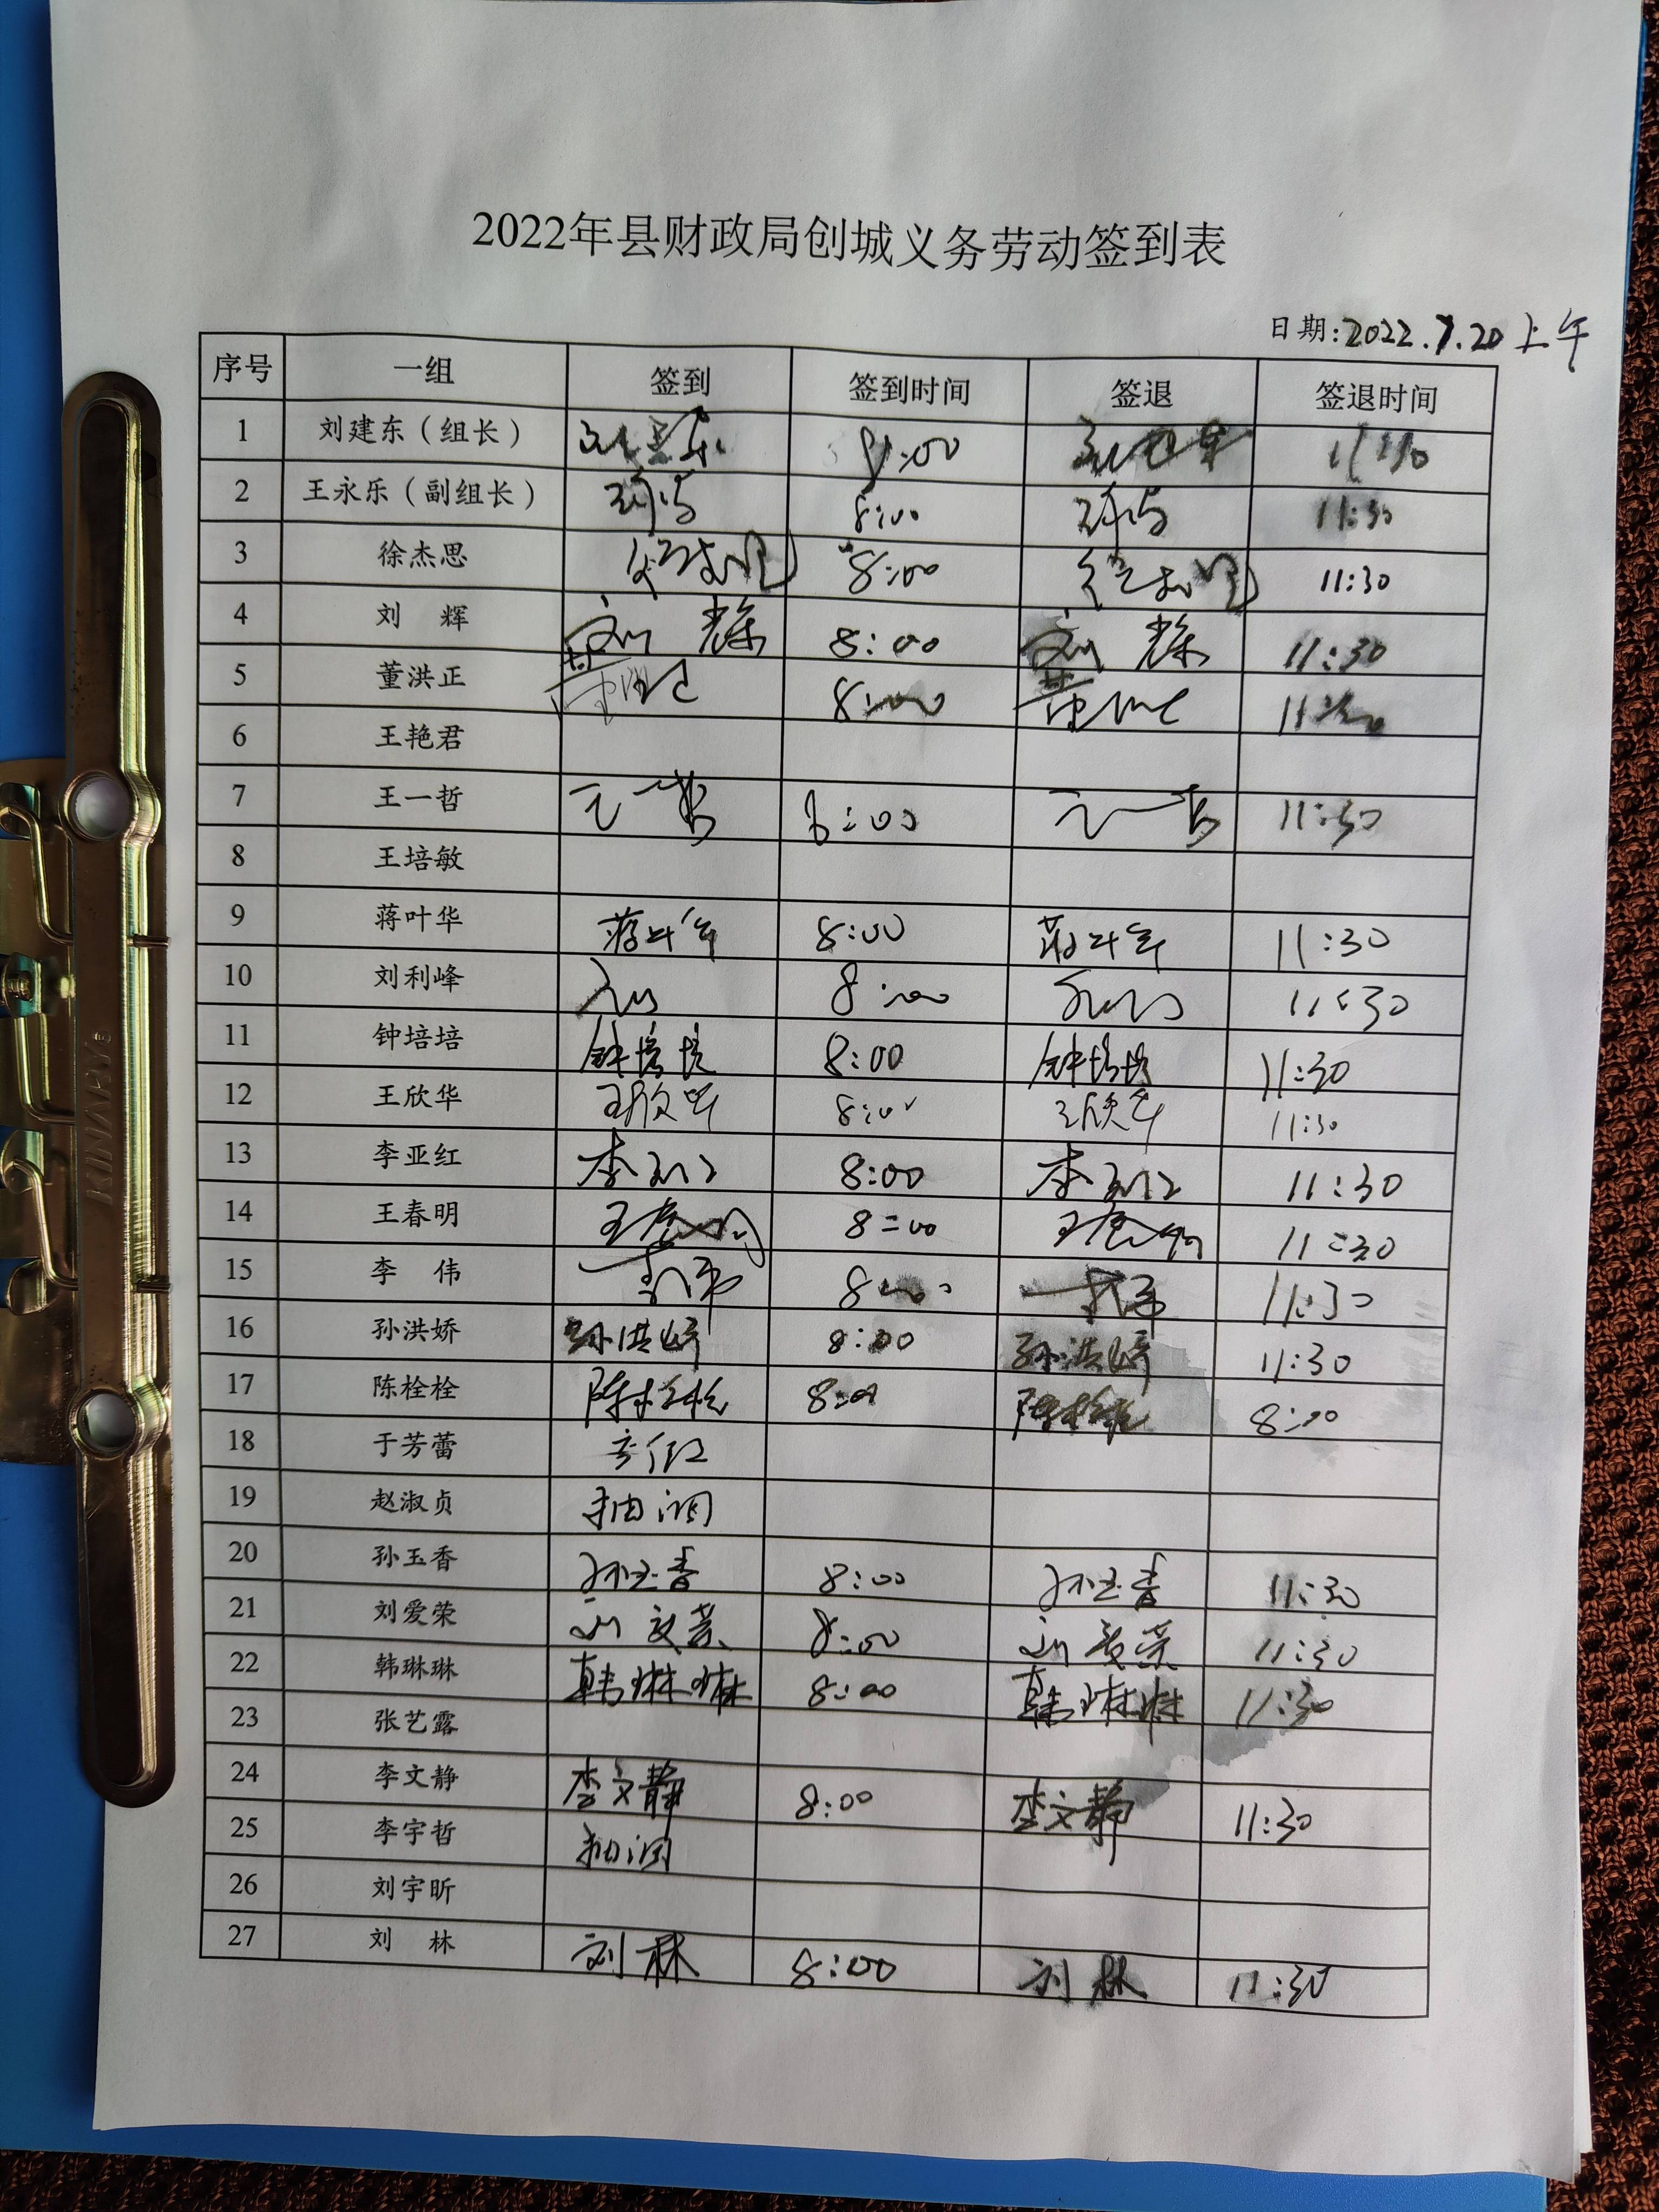 2022年县财政局创城义务劳动签到表
日期:2022.7.20 上午
序号 一组 签到 签到时间 签退 签退时间
1 刘建东（组长） 刘建东 8:00 刘建东 11:30
2 王永乐（副组长） 8:00 11:30
3 徐杰思 徐杰思 8:00 徐杰思 11:30
4 刘 辉 刘 辉 8:00 刘 辉 11:30
5 董洪正 董洪正 8:00 董洪正 11:30
6 王艳君
7 王一哲 王一哲 8:00 王一哲 11:30
8 王培敏
9 蒋叶华 蒋叶华 8:00 蒋叶华 11:30
10 刘利峰 8:00 11:30
11 钟培培 钟培培 8:00 钟培培 11:30
12 王欣华 王欣华 8:00 王欣华 11:30
13 李亚红 李亚红 8:00 李亚红 11:30
14 王春明 王春明 8:00 王春明 11:30
15 李 伟 李伟 8:00 李伟 11:30
16 孙洪娇 孙洪娇 8:00 孙洪娇 11:30
17 陈栓栓 陈栓栓 8:00 陈栓栓 8:00
18 于芳蕾
19 赵淑贞 抽调
20 孙玉香 孙玉香 8:00 孙玉香 11:30
21 刘爱荣 刘爱荣 8:00 刘爱荣 11:30
22 韩琳琳 韩琳琳 8:00 韩琳琳 11:30
23 张艺露
24 李文静 李文静 8:00 李文静 11:30
25 李宇哲 抽调
26 刘宇昕
27 刘 林 刘林 8:00 刘林 11:30
KINARY